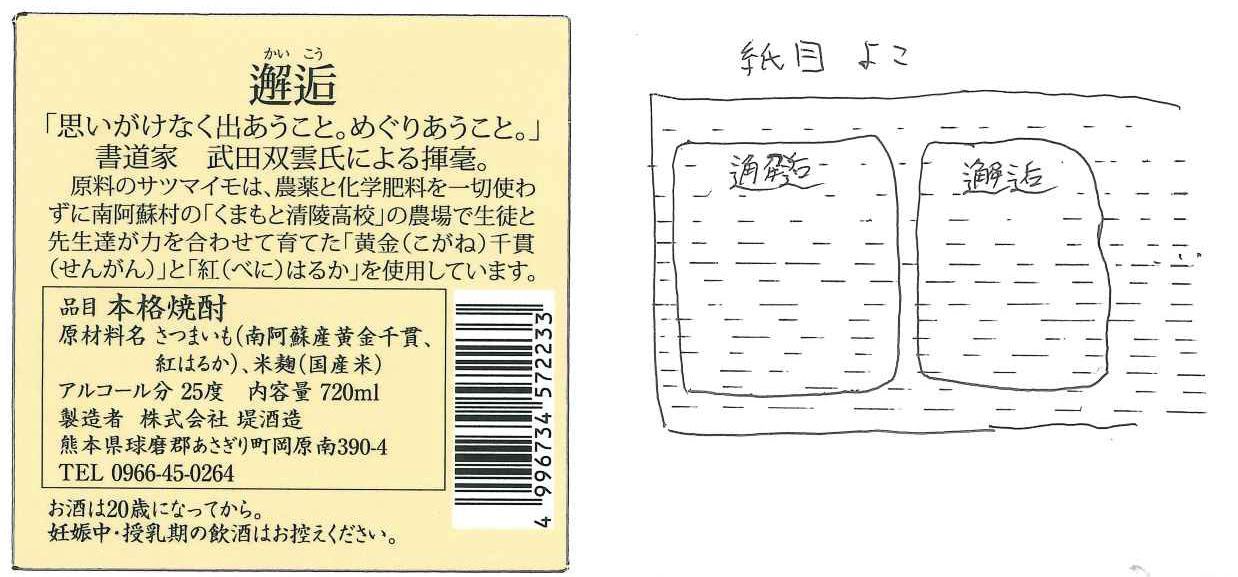 かい こう
邂逅
「思いがけなく出あうこと。めぐりあうこと。」
書道家　武田双雲氏による揮毫。
原料のサツマイモは、農薬と化学肥料を一切使わ
ずに南阿蘇村の「くまもと清陵高校」の農場で生徒と
先生達が力を合わせて育てた「黄金（こがね）千貫
（せんがん）」と「紅（べに）はるか」を使用しています。
品目 本格焼酎
原材料名 さつまいも（南阿蘇産黄金千貫、
紅はるか）、米麹（国産米）
アルコール分 25度　内容量 720ml
製造者　株式会社 堤酒造
熊本県球磨郡あさぎり町岡原南390-4
TEL 0966-45-0264
4 996734 572233
お酒は20歳になってから。
妊娠中・授乳期の飲酒はお控えください。
紙目 よこ
邂逅
邂逅